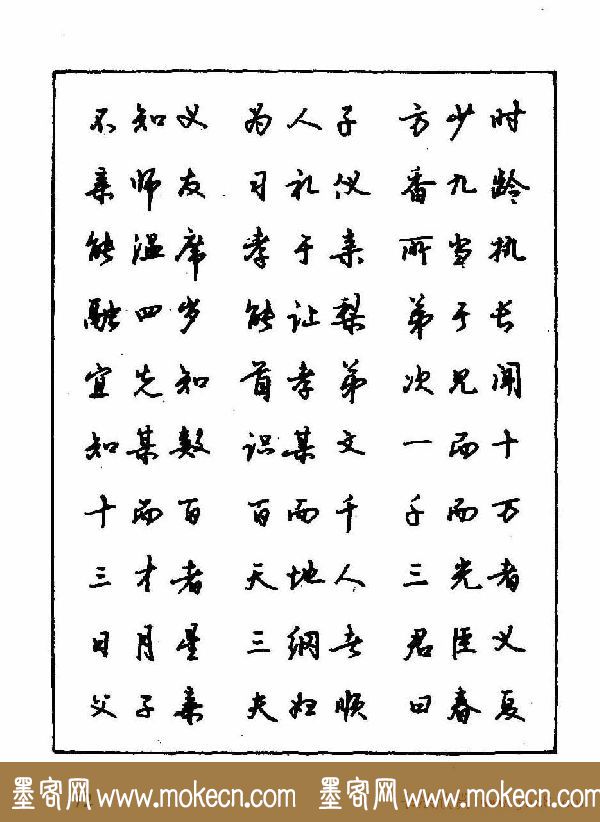 不知义 为人子 方少时
亲师友 习礼仪 香九龄
能温席 孝于亲 所当执
融四岁 能让梨 弟于长
宜先知 首孝弟 次见闻
知某数 识某文 一而十
十而百 百而千 千而万
三才者 天地人 三光者
日月星 三纲者 君臣义
父子亲 夫妇顺 曰春夏
墨客网 www.mokecn.com 墨客网 www.mokecn.com